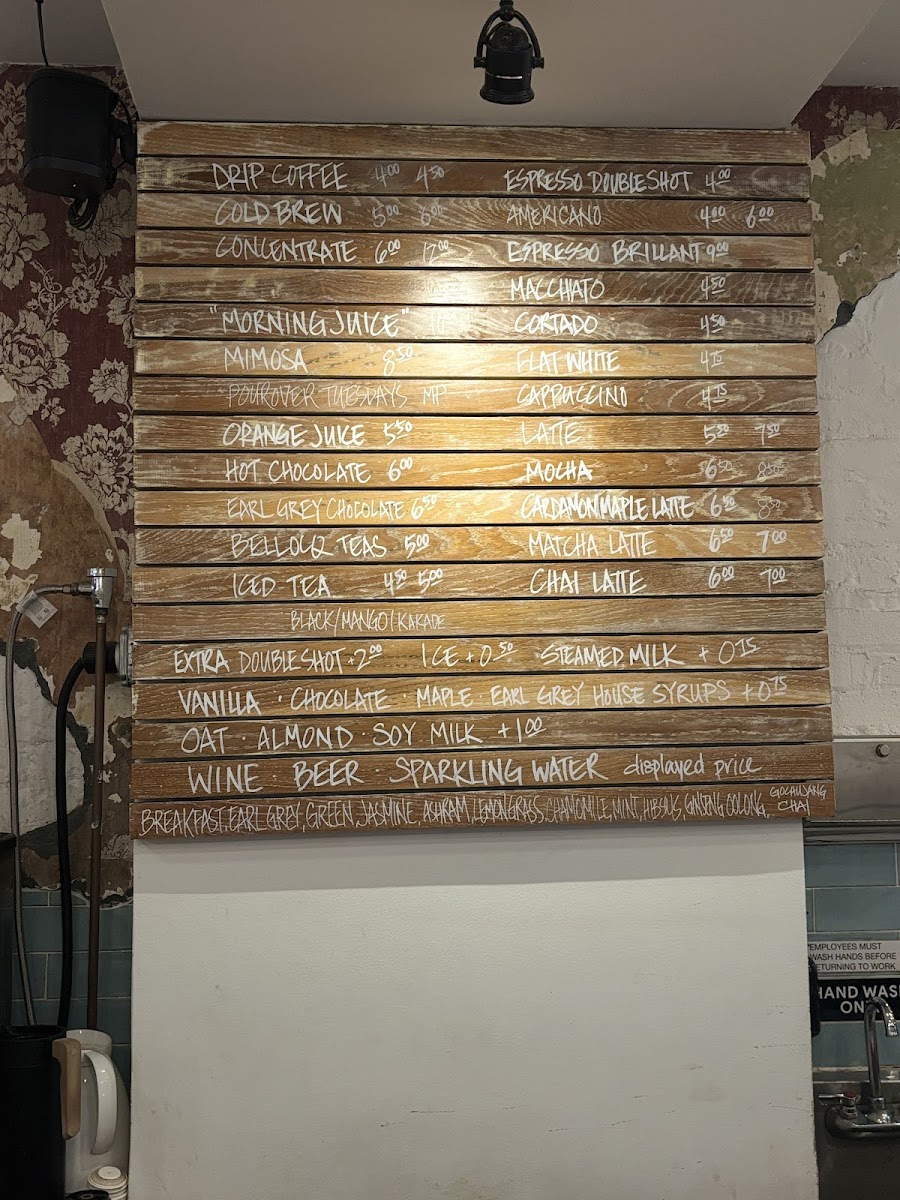 DRIP COFFEE 4.00 4.50
COLD BREW 5.00 6.00
CONCENTRATE 6.00 12.00
"MORNING JUICE"
MIMOSA 8.50
POUROVER TUESDAYS MP
ORANGE JUICE 5.50
HOT CHOCOLATE 6.00
EARL GREY CHOCOLATE 6.50
BELLOCQ TEAS 5.00
ICED TEA 4.50 5.00
BLACK/MANGO/KAKADE
ESPRESSO DOUBLESHOT 4.00
AMERICANO 4.00 6.00
ESPRESSO BRILLANT 9.00
MACCHIATO 4.50
CORTADO 4.50
FLAT WHITE 4.75
CAPPUCCINO 4.75
LATTE 5.50 7.50
MOCHA 6.50 8.50
CARDAMON MAPLE LATTE 6.50 8.50
MATCHA LATTE 6.50 7.00
CHAI LATTE 6.00 7.00
EXTRA DOUBLESHOT +2.00 ICE +0.50 STEAMED MILK +0.75
VANILLA · CHOCOLATE · MAPLE · EARL GREY HOUSE SYRUPS +0.75
OAT · ALMOND · SOY MILK +1.00
WINE BEER · SPARKLING WATER displayed price
BREAKFAST, EARL GREY, GREEN, JASMINE, ASHRAM, LEMONGRASS, CHAMOMILE, MINT, HIBISCUS, GINSENG OOLONG, GOCHUJANG CHAI
EMPLOYEES MUST
WASH HANDS BEFORE
RETURNING TO WORK
HAND WASH
ON